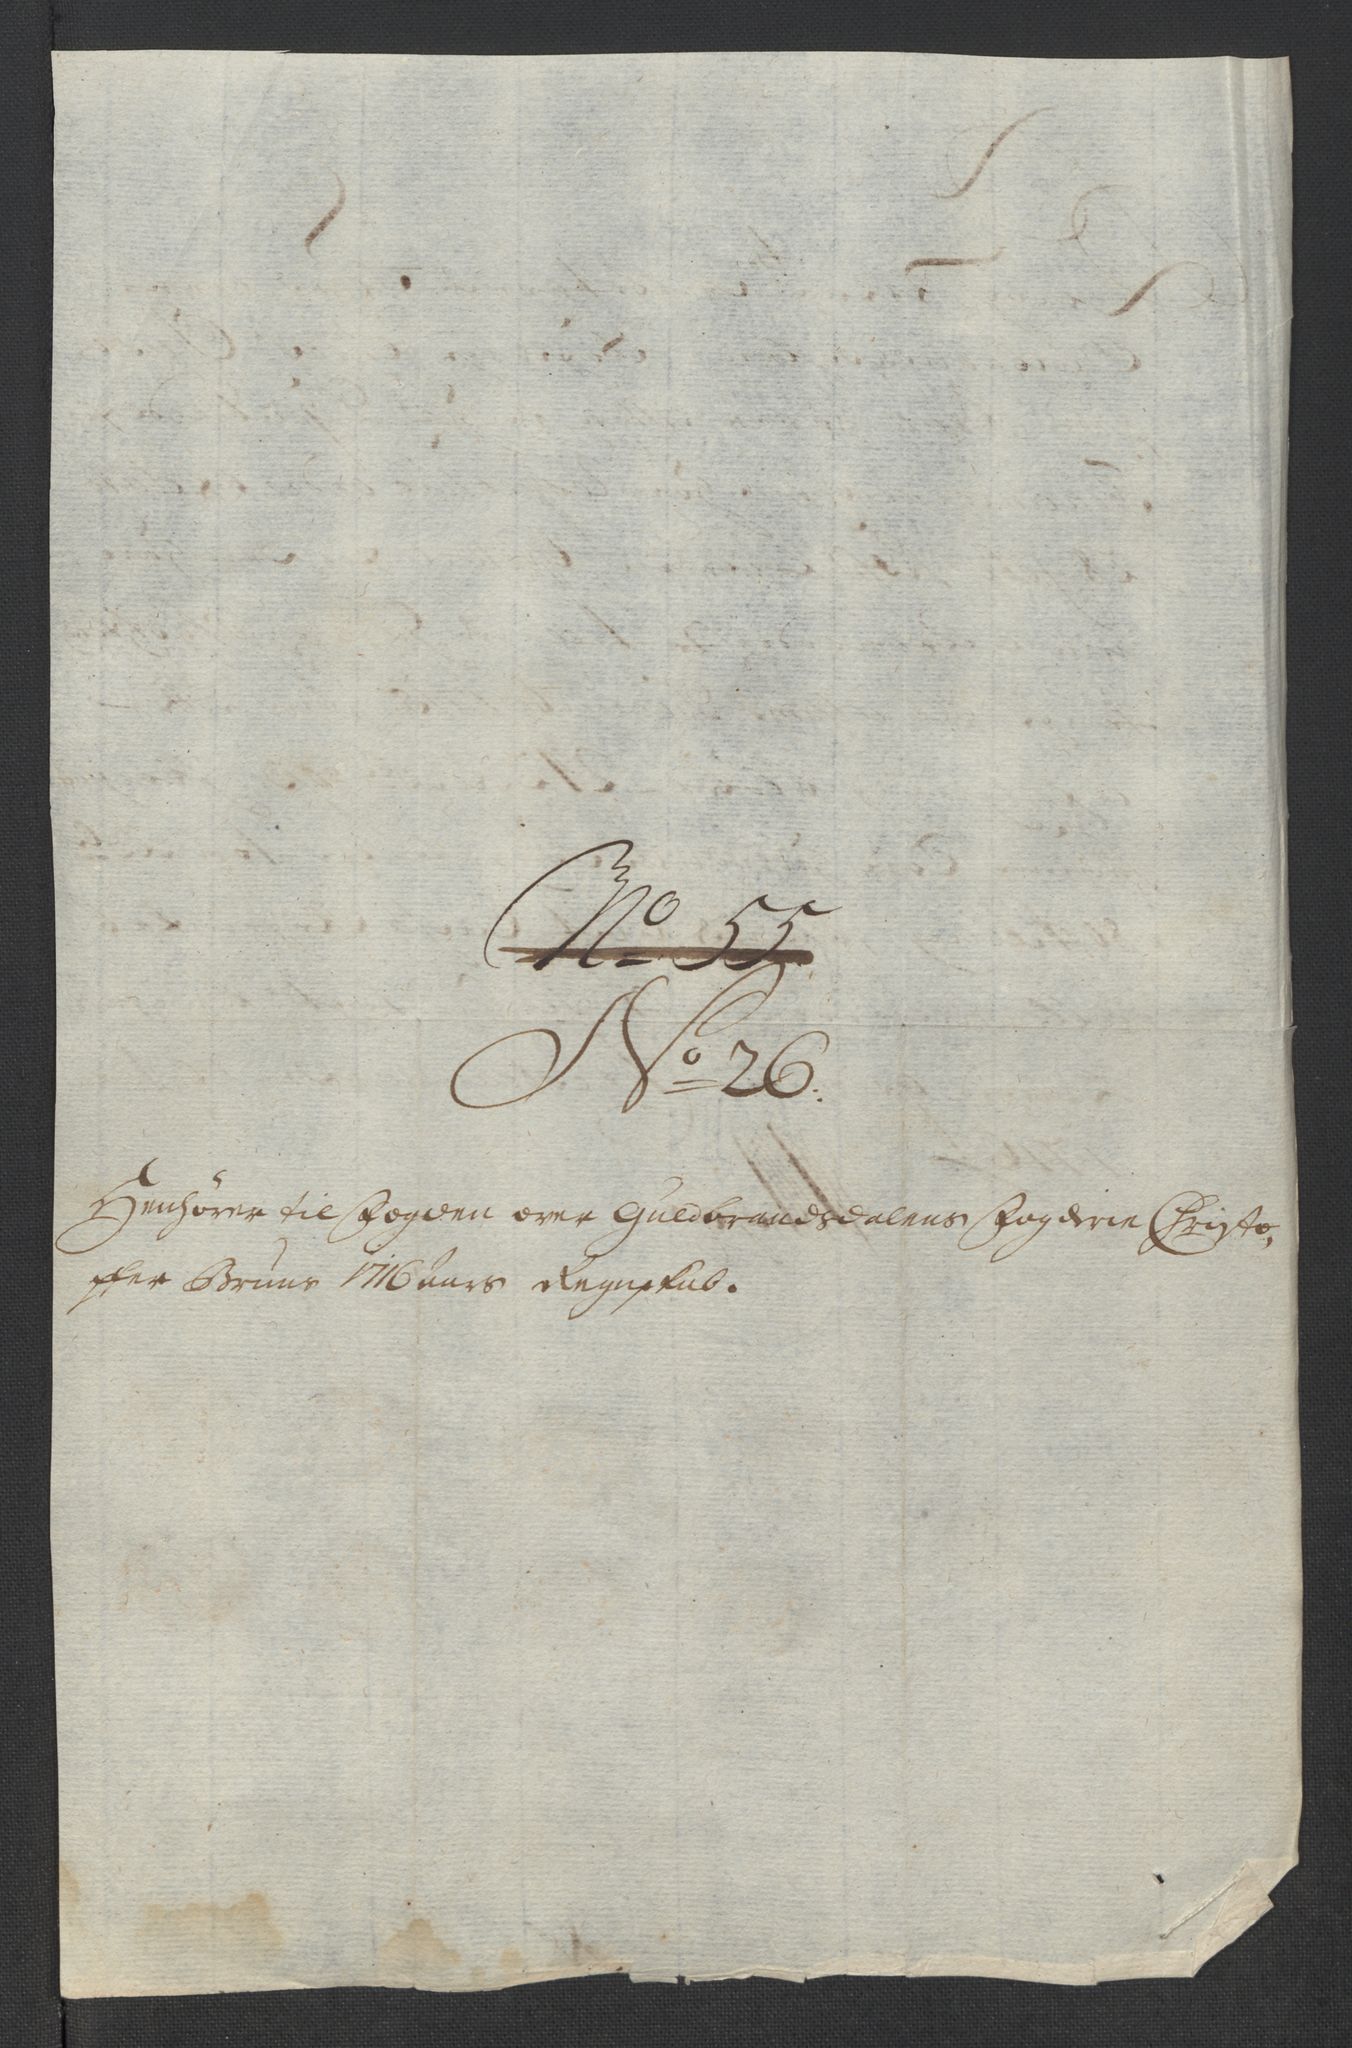 No 55
No 26.
Henhörer til Fogden over Guldbrandsdalens Fogderie Christo,
ffer Bruns 1716 aars Regnskab.